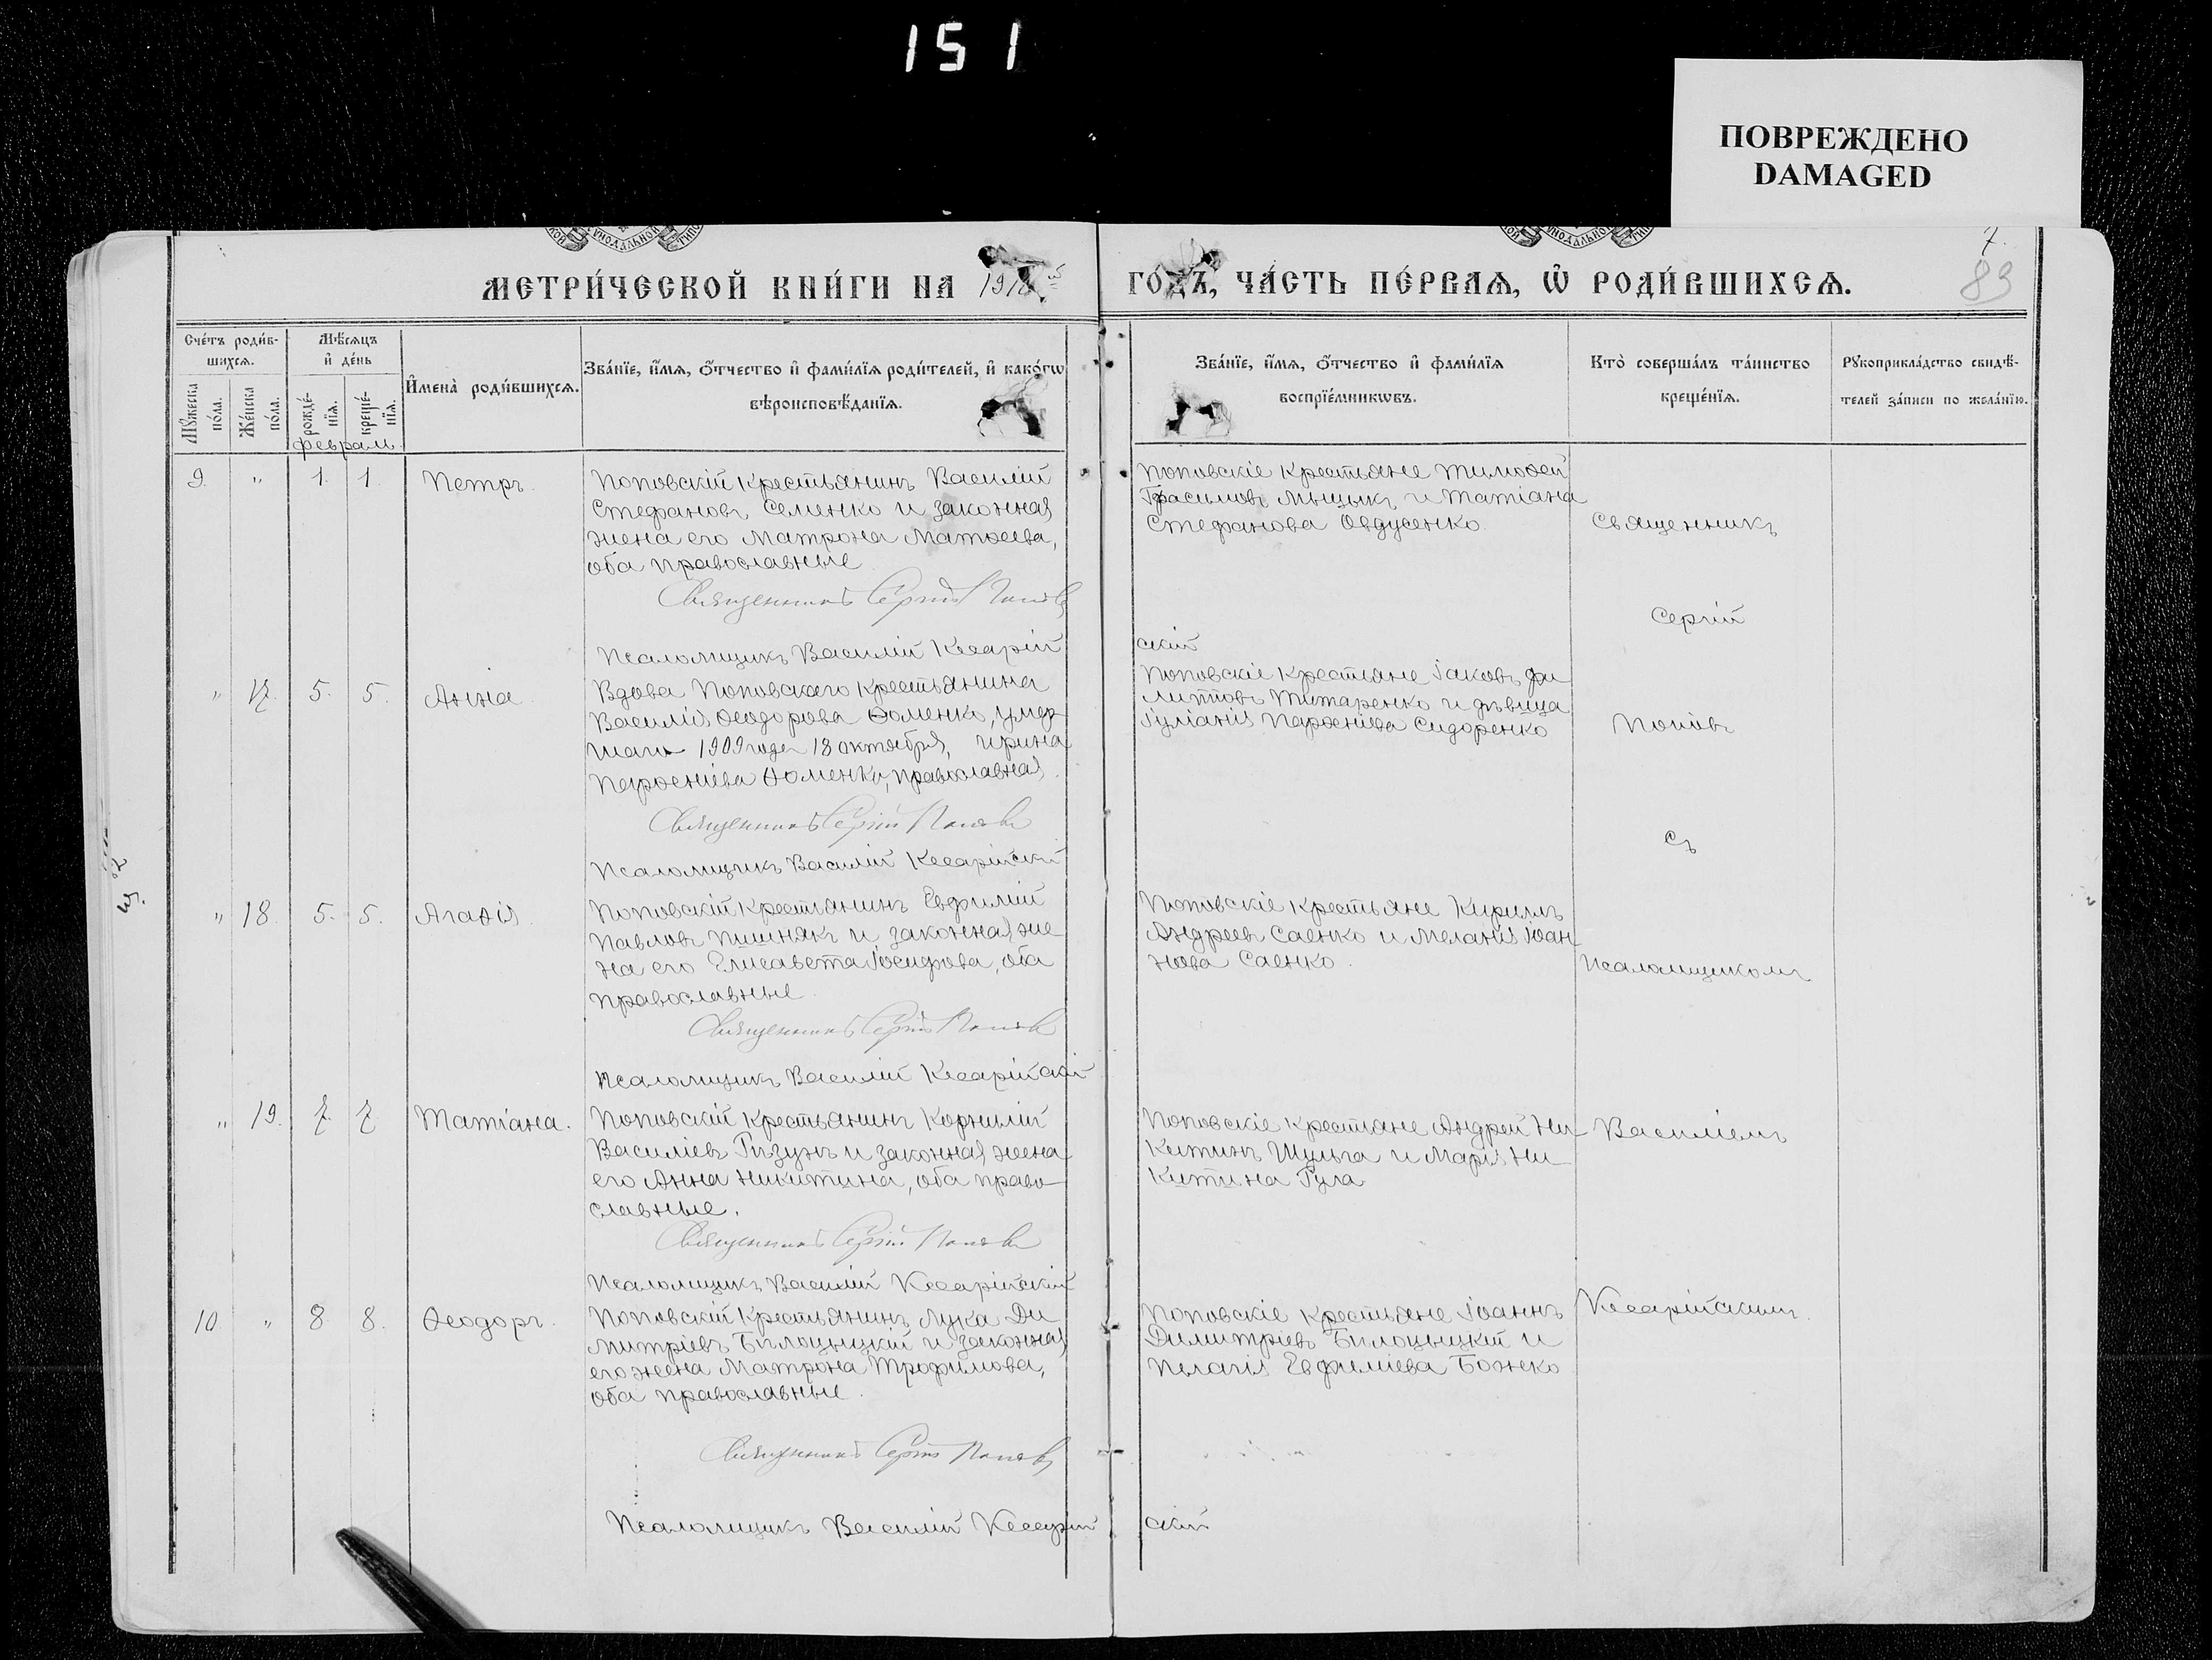 151
ПОВРЕЖДЕНО
DAMAGED
МЕТРИ́ЧЕСКОЙ КНИ́ГИ НА 191
ГО́ДЪ, ЧА́СТЬ ПЕ́РВАѦ, Ѽ РОДИ́ВШИХСѦ.
7.
83
Сче́тъ роди́в-
шихсѧ.
Мѣ́сѧцъ
и҆ де́нь
Мꙋ́жеска
по́ла.
Же́нска
по́ла.
рожде́-
нїѧ.
креще́-
нїѧ.
И҆мена̀ роди́вшихсѧ.
Зва́нїе, и҆́мѧ, ѻ҆́тчество и҆ фами́лїѧ роди́телей, и҆ како́гѡ
вѣроисповѣ́данїѧ.
Зва́нїе, и҆́мѧ, ѻ҆́тчество и҆ фами́лїѧ
воспрїе́мникѡвъ.
Кто̀ соверша́лъ та́инство
креще́нїѧ.
Рꙋкоприкла́дство свидѣ́-
телей за́писи по жела́нїю.
феврал.
9. " 1. 1. Петръ.
Поповскій крестьянинъ Василій
Стефановъ Семенко и законная
жена его Матрона Матѳеева,
оба православные.
Священникъ Сергій Поповъ
Псаломщикъ Василій Кесарій
скій
Поповскіе крестьяне Тимоѳей
Герасимовъ Мыцыкъ и Татіана
Стефанова Овдусенко.
Священникъ
Сергій
" 17. 5. 5. Анна.
Вдова Поповскаго крестьянина
Василія Ѳеодорова Ѳоменко, умер
шаго 1909 года 18 октября, Ирина
Парѳеніева Ѳоменко, православная.
Священникъ Сергій Поповъ
Псаломщикъ Василій Кесарійскій
Поповскіе крестьяне Іаковъ Фи
липповъ Титаренко и дѣвица
Іуліанія Парѳеніева Сидоренко
Поповъ
съ
" 18. 5. 5. Агаѳія.
Поповскій крестьянинъ Евфимій
Павловъ Пишнякъ и законная же
на его Елисавета Іосифова, оба
православные.
Священникъ Сергій Поповъ
Псаломщикъ Василій Кесарійскій
Поповскіе крестьяне Кириллъ
Андреевъ Саенко и Меланія Іоан
нова Саенко.
Псаломщикомъ
" 19. 7. 7. Татіана.
Поповскій крестьянинъ Корнилій
Василіевъ Гизунъ и законная жена
его Анна Никитина, оба право-
славные.
Священникъ Сергій Поповъ
Псаломщикъ Василій Кесарійскій
Поповскіе крестьяне Андрей Ни-
китинъ Шульга и Марія Ни-
китина Гула
Василіемъ
10. " 8 8. Ѳеодоръ.
Поповскій крестьянинъ Лука Ди
митріевъ Билоцыцкій и законная
его жена Матрона Трофимова,
оба православные.
Священникъ Сергій Поповъ
Псаломщикъ Василій Кесарій
скій
Поповскіе крестьяне Іоаннъ
Димитріевъ Билоцыцкій и
Пелагія Евфиміева Божко
Кесарійскимъ.